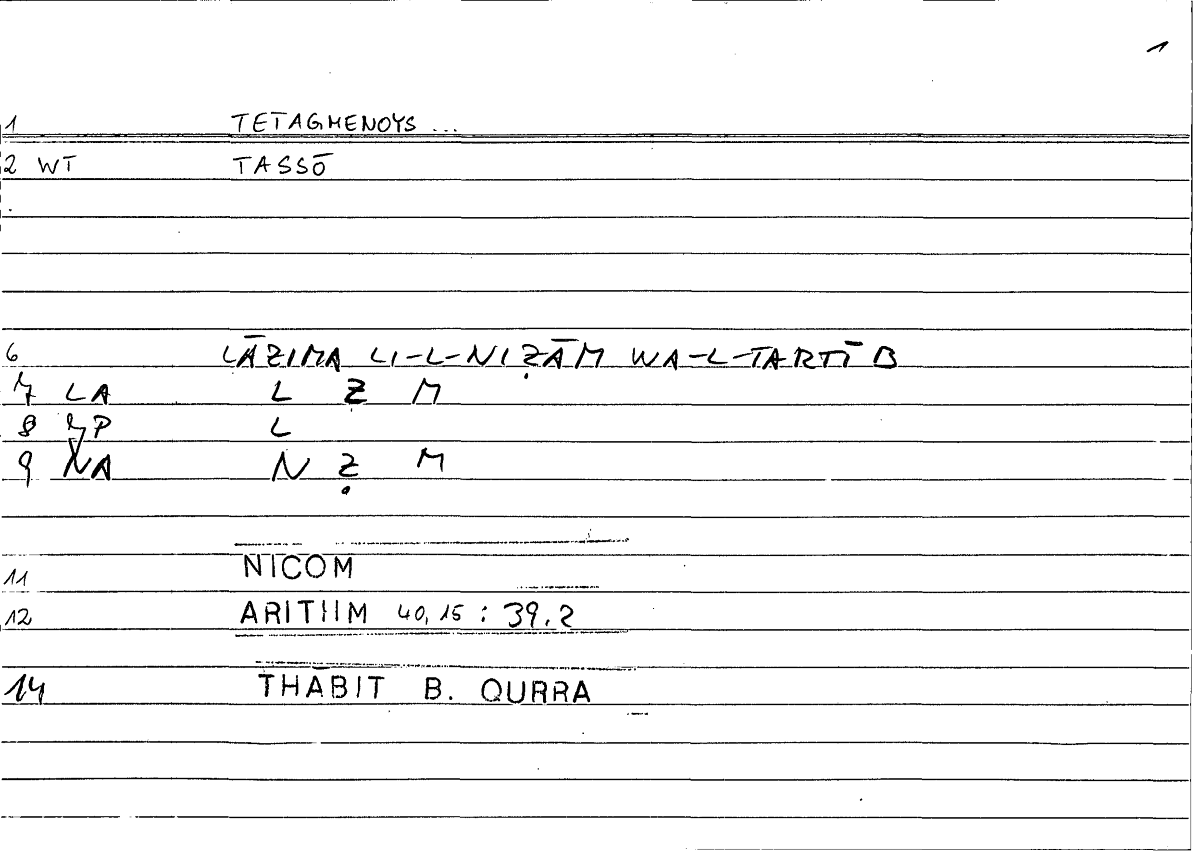 1
1 TETAGMENOYS ...
2 WT TASSŌ
6 LĀZIMA LI-L-NIẒĀM WA-L-TARTĪB
7 LA L Z M
8 L
9 NA N Ẓ M
11 NICOM
12 ARITHM 40,15 : 39.2
14 THĀBIT B. QURRA